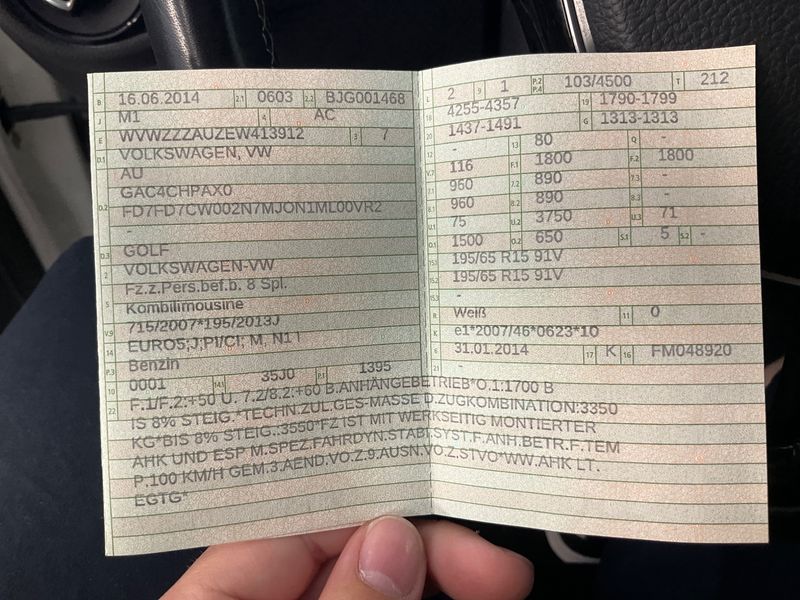 B 16.06.2014 2.1 0603 2.2 BJG001468
J M1 4 AC
E WVWZZZAUZEW413912 3 7
D.1 VOLKSWAGEN, VW
AU
D.2 GAC4CHPAX0
FD7FD7CW002N7MJON1ML00VR2
-
D.3 GOLF
2 VOLKSWAGEN-VW
5 Fz.z.Pers.bef.b. 8 Spl.
Kombilimousine
V.9 715/2007*195/2013J
14 EURO5;J;PI/CI; M, N1 I
P.3 Benzin
10 0001 14.1 35J0 P.1 1395
22 F.1/F.2:+50 U. 7.2/8.2:+60 B.ANHÄNGEBETRIEB*O.1:1700 B
IS 8% STEIG.*TECHN.ZUL.GES-MASSE D.ZUGKOMBINATION:3350
KG*BIS 8% STEIG.:3550*FZ IST MIT WERKSEITIG MONTIERTER
AHK UND ESP M.SPEZ.FAHRDYN.STABI.SYST.F.ANH.BETR.F.TEM
P.100 KM/H GEM.3.AEND.VO.Z.9.AUSN.VO.Z.STVO*WW.AHK LT.
EGTG*
L 2 9 1 P.2 P.4 103/4500 T 212
18 4255-4357 19 1790-1799
20 1437-1491 G 1313-1313
12 - 13 80 Q -
V.7 116 F.1 1800 F.2 1800
7.1 960 7.2 890 7.3 -
8.1 960 8.2 890 8.3 -
U.1 75 U.2 3750 U.3 71
O.1 1500 O.2 650 S.1 5 S.2 -
15.1 195/65 R15 91V
15.2 195/65 R15 91V
15.3 -
R Weiß 11 0
K e1*2007/46*0623*10
6 31.01.2014 17 K 16 FM048920
21 -